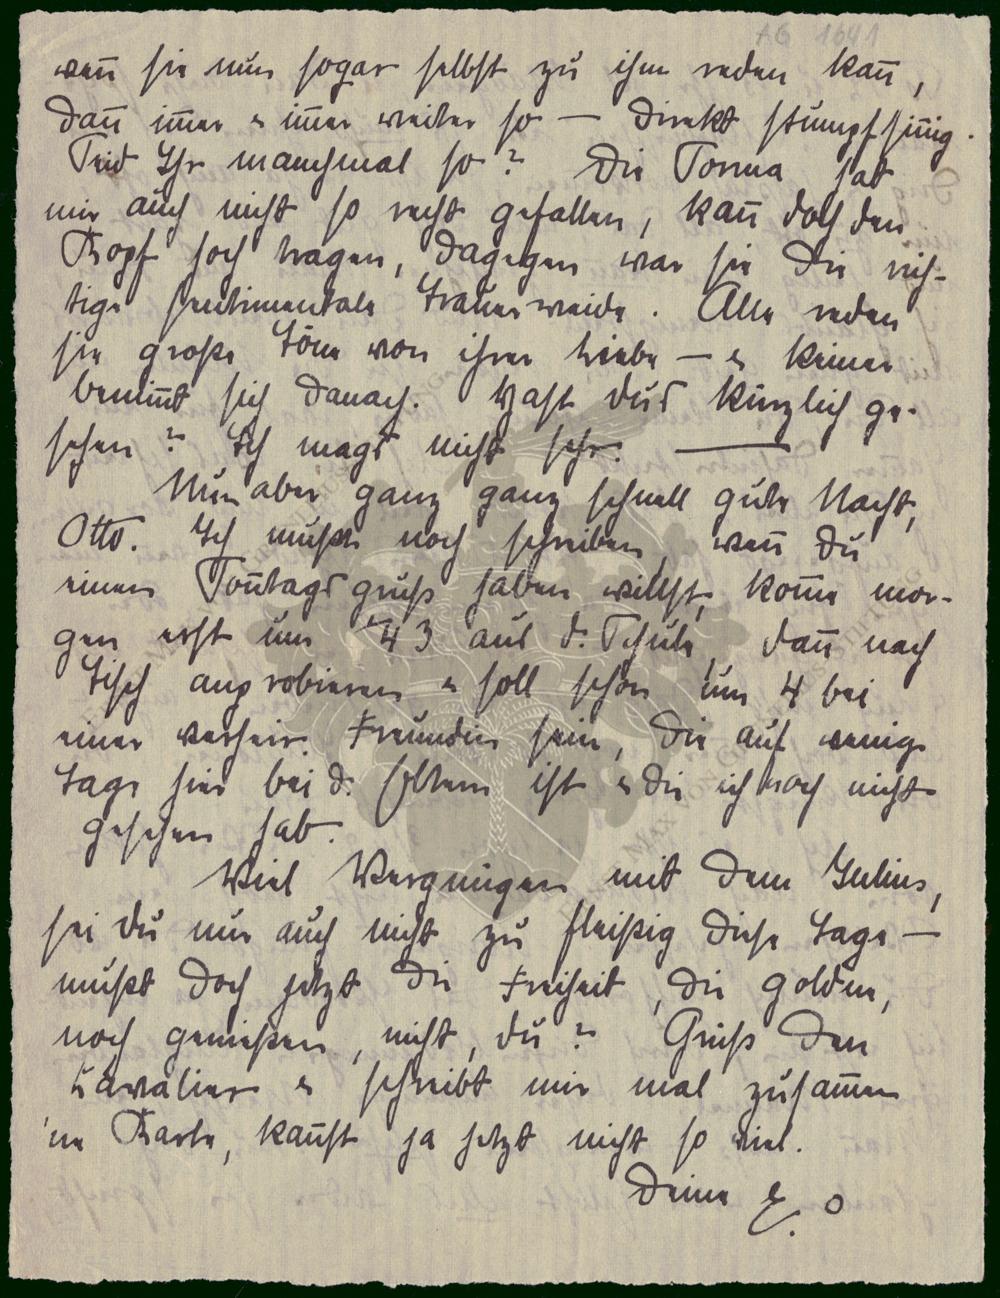 AG 1641
wen̅ sie nun sogar selbst zu ihm reden kan̅,
dan̅ im̅er & im̅er weiter so — direkt stumpfsin̅ig.
Seid Ihr manchmal so? Die Torma hat
mir auch nicht so recht gefallen, kan̅ doch den
Kopf hoch tragen, dagegen war sie die rich-
tige sentimentale Trauerweide. Alle reden
sie große Töne von ihrer Liebe — & keiner
benim̅t sich danach. Hast dus kürzlich ge-
sehen? Ich mags nicht sehr. —
Nun aber ganz ganz schnell gute Nacht,
Otto. Ich mußte noch schreiben, wen̅ du
einen Son̅tagsgruß haben willst, kom̅e mor-
gen erst um 1/4 3 aus d. Schule, dan̅ nach
Tisch anprobieren & soll schon um 4 bei
einer verheir. Freundin sein, die auf wenige
Tage hier bei d. Eltern ist & die ich noch nicht
gesehen hab.
Viel Vergnügen mit dem Julius,
sei du nur auch nicht zu fleißig diese Tage —
mußt doch jetzt die Freiheit, die goldne,
noch genießen, nicht, du? Grüß den
Kavalier & schreibt mir mal zusam̅en
'ne Karte, kan̅st ja jetzt nicht so viel.
Deine E.